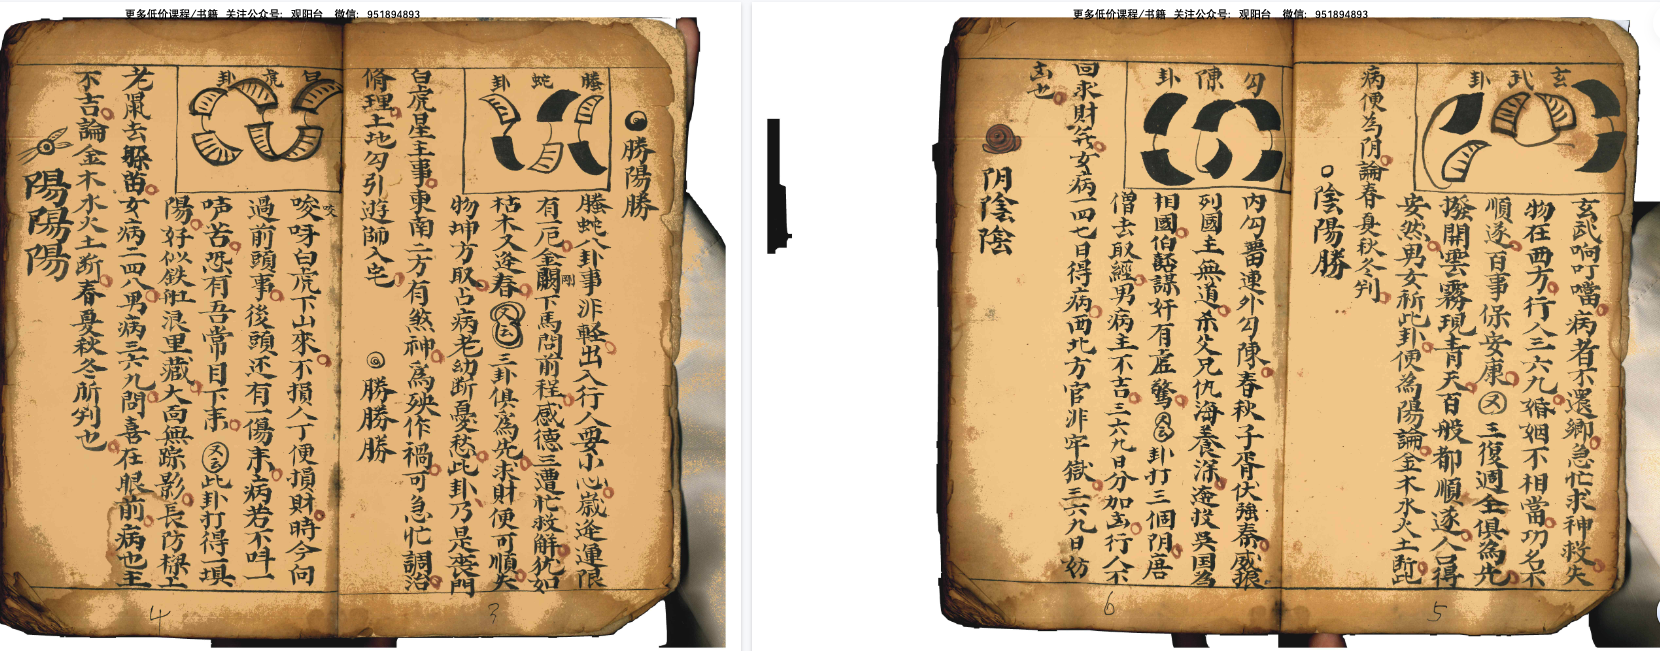 更多低价课程/书籍 关注公众号: 观阳台 微信: 951894893
勝陽勝
螣蛇卦
螣蛇八卦事非輕出入行人要小心歲逢運限
有厄金關剛下馬問前程感德三遭忙救解犹如
枯木又逢春又云三卦俱為先求財便可順失
物坤方取占病老幼斷憂愁此卦乃是喪門
白虎星主事東南二方有煞神為殃作禍可急忙調治
脩理土地勾引遊師入宅
勝勝勝
白虎卦
咬咬呀白虎下山來不損人丁便損財時今向
過前頭事後頭还有一傷事病若不呌一
声苦恐有吾常目下事又云此卦打得一堁
陽好似鉄舡浪里藏大向無踪影長防樑上
老鼠去躲苗女病二四八男病三六九問喜在眼前病也主
不吉論金木水火土断春夏秋冬所判也
陽陽陽
4
3
更多低价课程/书籍 关注公众号: 观阳台 微信: 951894893
玄武卦
玄武响叮噹病者不還鄉急忙求神救失
物在西方行人三六九婚姻不相當功名不
順遂百事保安康又三復週全俱為先
撥開雲霧現青天百般都順遂人口得
安然男女祈此卦便為陽論金木水火土斷此
病便為阴論春身秋冬判
陰陽勝
勾陳卦
内勾曹連外勾陳春秋子胥伏強秦威振
列國主無道杀父兄仇海養深逃投吳国為
相國伯嚭謀奸有虛驚又云卦打三個阴唐
僧去取經男病主不吉三六九日分加凶行人不
回求財無女病一四七日得病西北方官非牢獄三六九日妨
凶也
阴陰陰
6
5